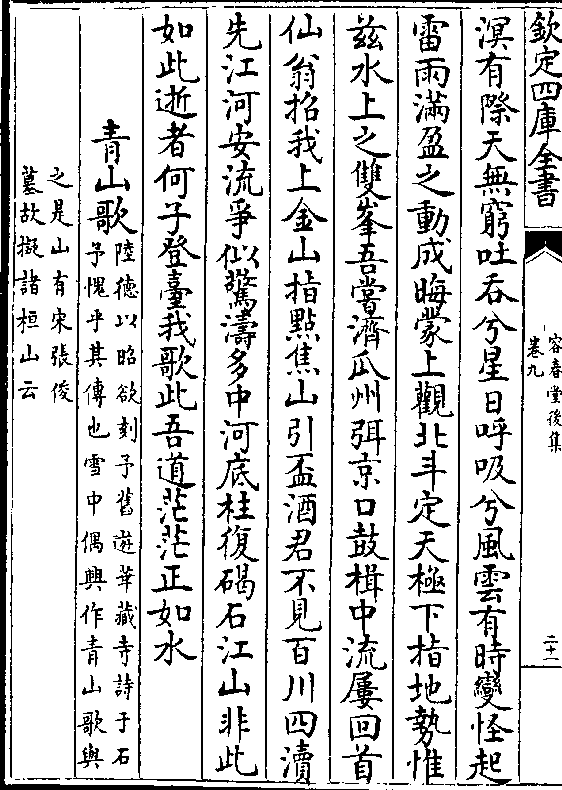 欽定四庫全書
容春堂後集
卷九
二十一
溟有際天無窮吐吞兮星日呼吸兮風雲有時變怪起
雷雨滿盈之動成晦蒙上觀北斗定天極下指地勢惟
兹水上之雙峯吾嘗濟瓜州弭京口鼓楫中流屢回首
仙翁招我上金山指點焦山引盃酒君不見百川四瀆
先江河安流爭似驚濤多中河底柱復碣石江山非此
如此逝者何子登臺我歌此吾道茫茫正如水
青山歌
陸德以昭欲刻予舊遊華藏寺詩于石
予愧乎其傳也雪中偶興作青山歌與
之是山有宋張俊
墓故擬諸桓山云